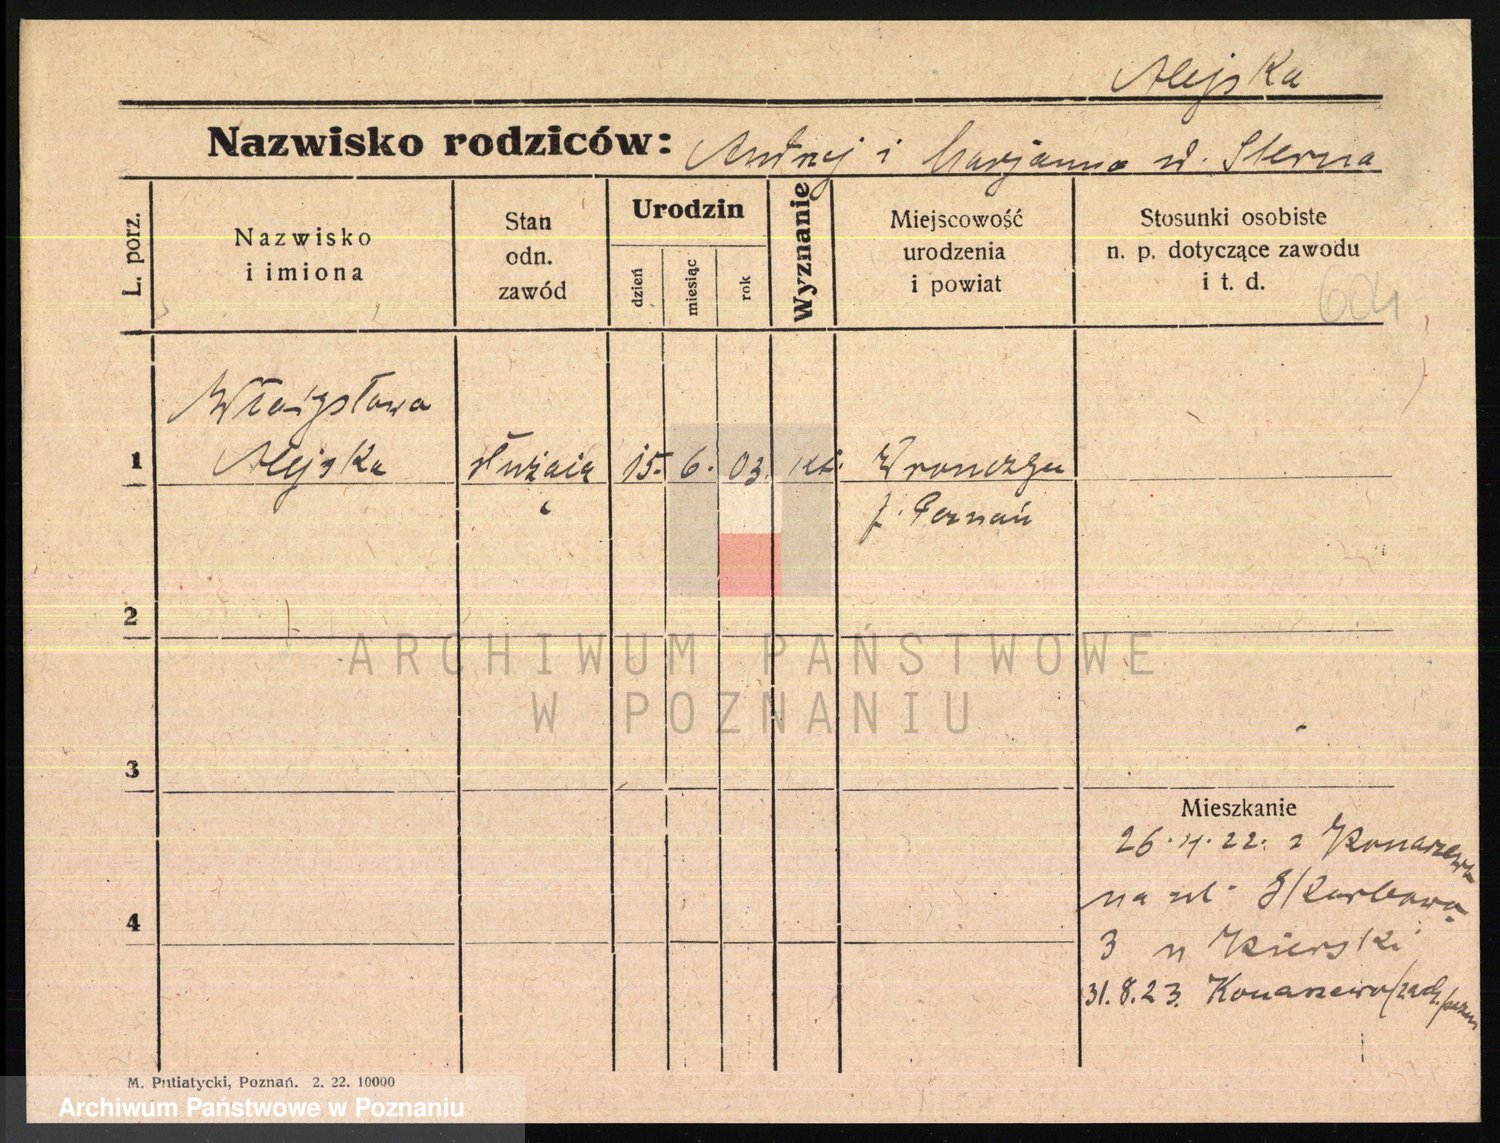 Alejska
Nazwisko rodziców: Andrzej i Marjanna z d. Sterna
L. porz.
Nazwisko
i imiona
Stan
odn.
zawód
Urodzin
dzień
miesiąc
rok
Wyznanie
Miejscowość
urodzenia
i powiat
Stosunki osobiste
n. p. dotyczące zawodu
i t. d.
604
Władysława
1 Alejska służąca 15. 6. 03. kat. Wronczyn
p. Poznań
2
ARCHIWUM PAŃSTWOWE
W POZNANIU
3
Mieszkanie
26. 4. 22. z Konarzewa
na ul. Skarbowa
4
3 u Kierski
31. 8. 23. Konarzewo
M. Putiatycki, Poznań. 2. 22. 10000
Archiwum Państwowe w Poznaniu